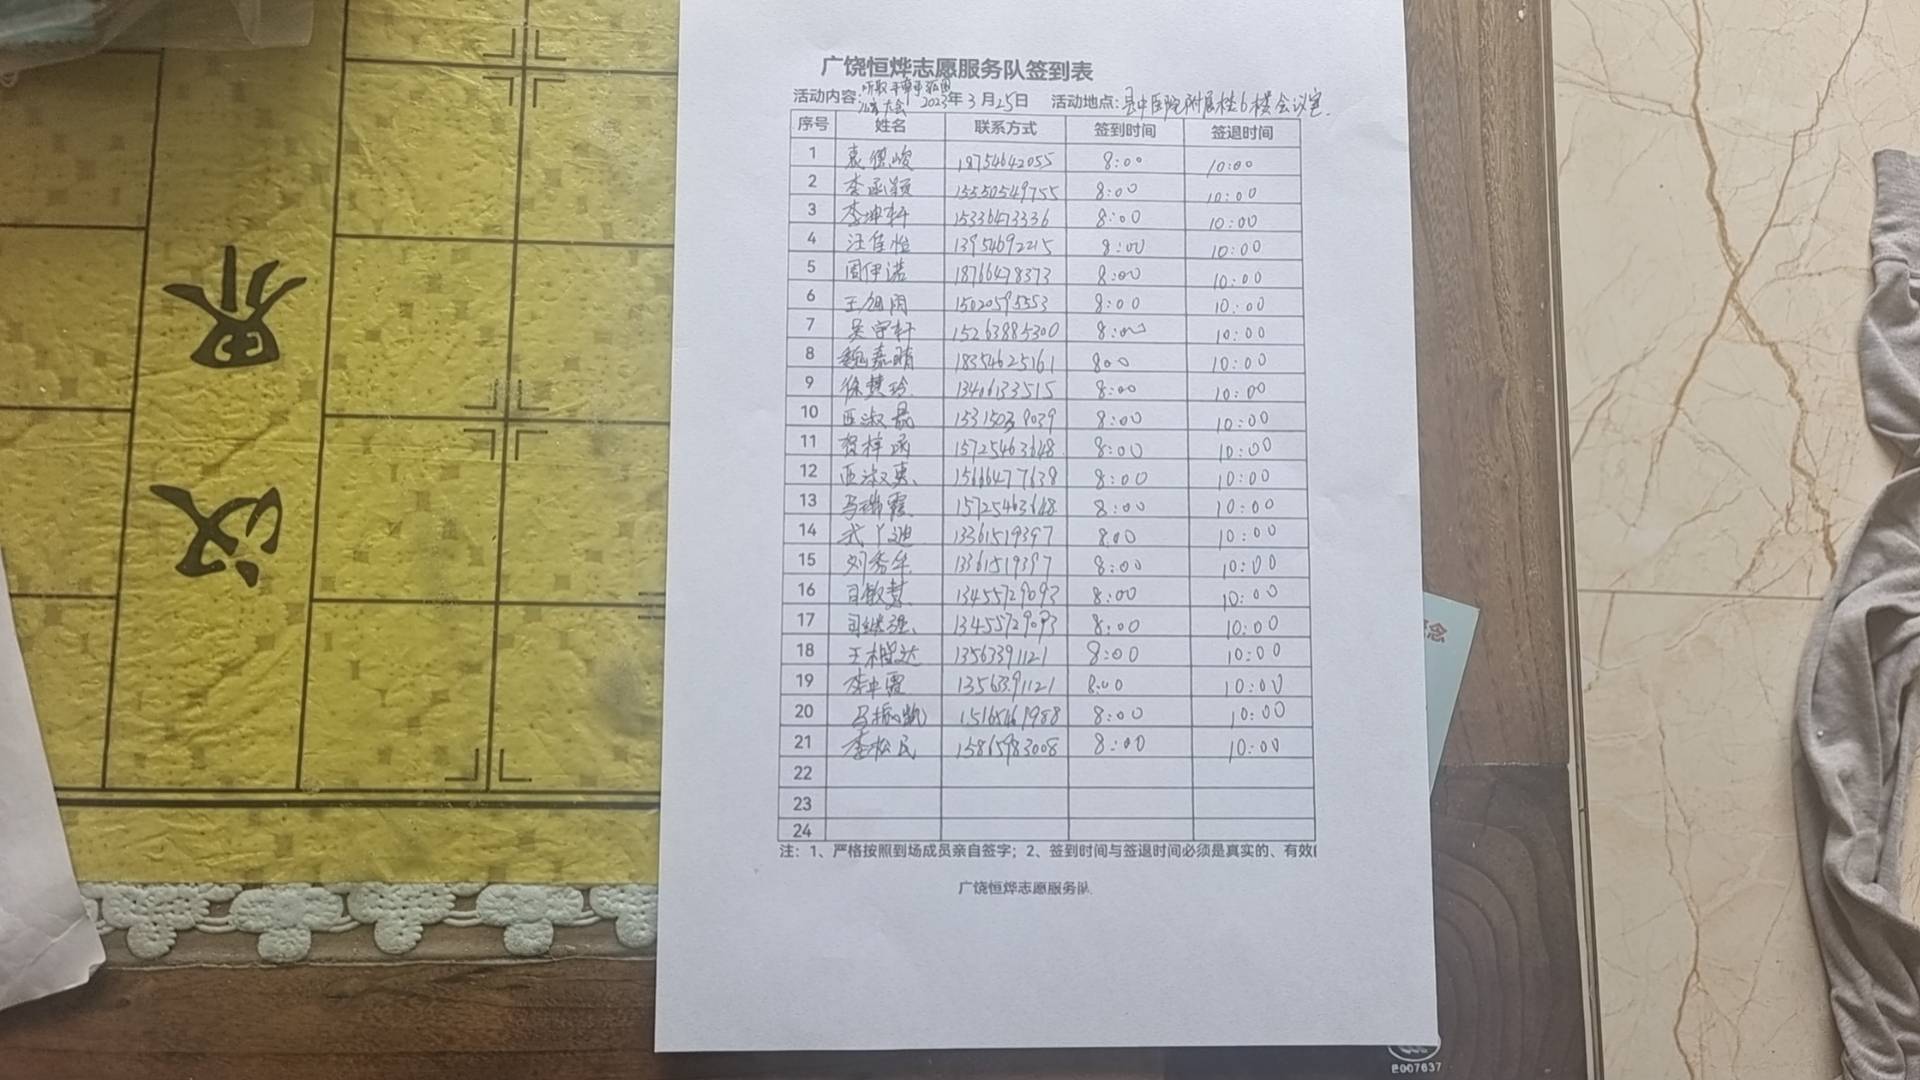 广饶恒烨志愿服务队签到表
活动内容: 2023年3月25日 活动地点:县中医院附属楼6楼会议室
序号 姓名 联系方式 签到时间 签退时间
1 18754642055 8:00 10:00
2 李函颖 15550549755 8:00 10:00
3 李坤轩 15336473336 8:00 10:00
4 汪佳怡 13954692215 8:00 10:00
5 周伊诺 18766478373 8:00 10:00
6 王旭雨 15020595553 8:00 10:00
7 吴宇轩 15263885300 8:00 10:00
8 魏嘉晴 18354625161 800 10:00
9 徐慧玲 13406133515 8:00 10:00
10 8:00 10:00
11 贺梓函 15725463648 8:00 10:00
12 15666477638 8:00 10:00
13 马瑞霞 15725463648 8:00 10:00
14 武丫迪 13361519397 8:00 10:00
15 刘秀华 13361519397 8:00 10:00
16 司敏慧 13455729093 8:00 10:00
17 司继强 13455729093 8:00 10:00
18 13563391121 8:00 10:00
19 李中霞 13563391121 8:00 10:00
20 马振凯 15165461988 8:00 10:00
21 李松民 15865983008 8:00 10:00
22
23
24
注：1、严格按照到场成员亲自签字；2、签到时间与签退时间必须是真实的、有效
广饶恒烨志愿服务队
汉
界
念
E007637